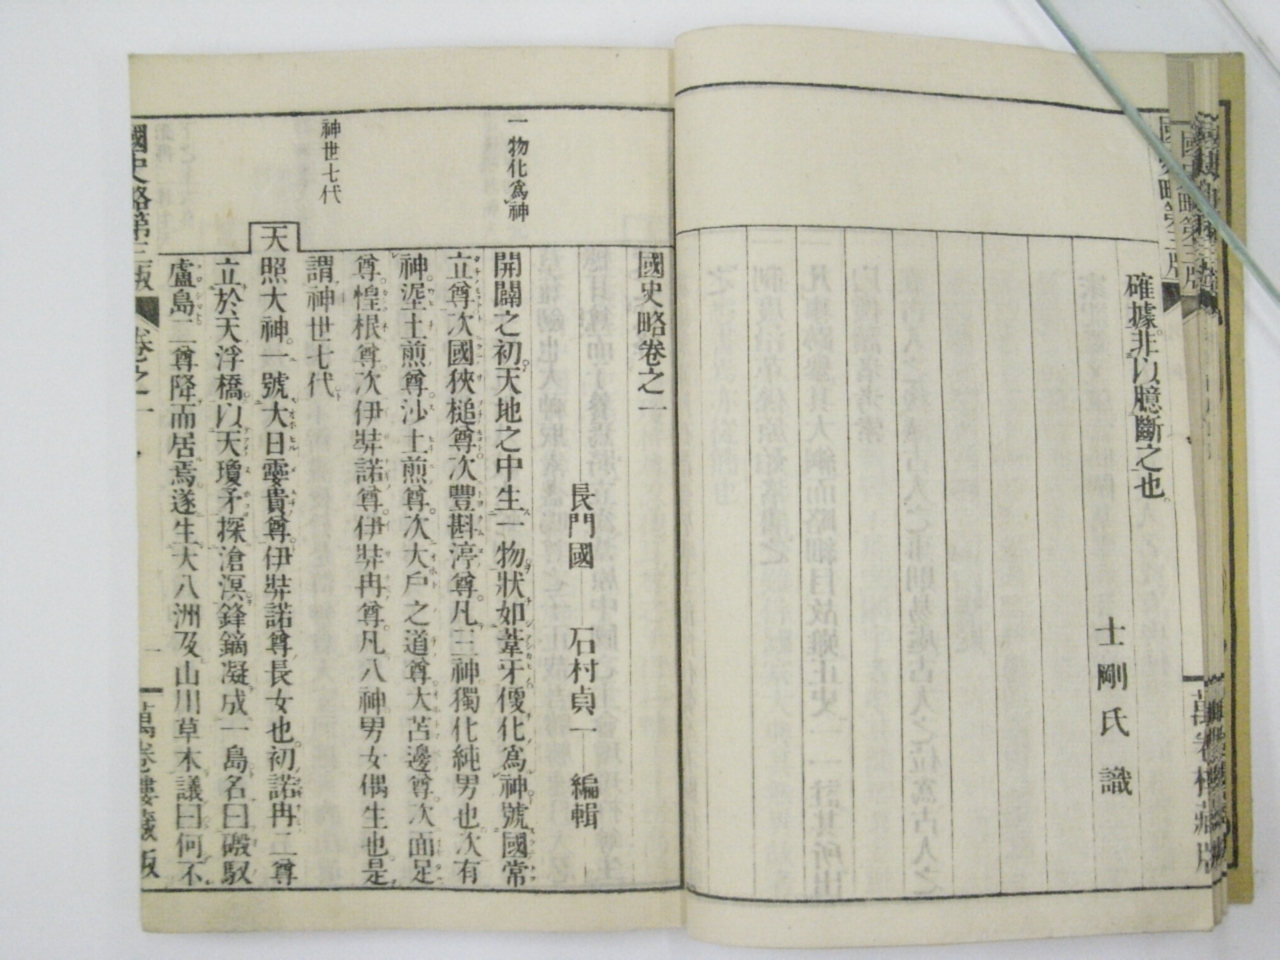 確據非以臆斷之也
士剛氏識
萬卷樓藏版
國史略卷之一
長門國 石村貞一 編輯
一物化爲神
開闢之初天地之中生一物狀如葦牙便化爲神號國常
立尊次國狹槌尊次豐斟渟尊凡三神獨化純男也次有
神埿土煎尊沙土煎尊次大戶之道尊大苫邊尊次面足
尊惶根尊次伊弉諾尊伊弉冉尊凡八神男女偶生也是
神世七代
謂神世七代
天照大神一號大日孁貴尊伊弉諾尊長女也初諾冉二尊
立於天浮橋以天瓊矛探滄溟鋒鏑凝成一島名曰磤馭
盧島二尊降而居焉遂生大八洲及山川草木議曰何不
國史略第三版 卷之一 一 萬卷樓藏版